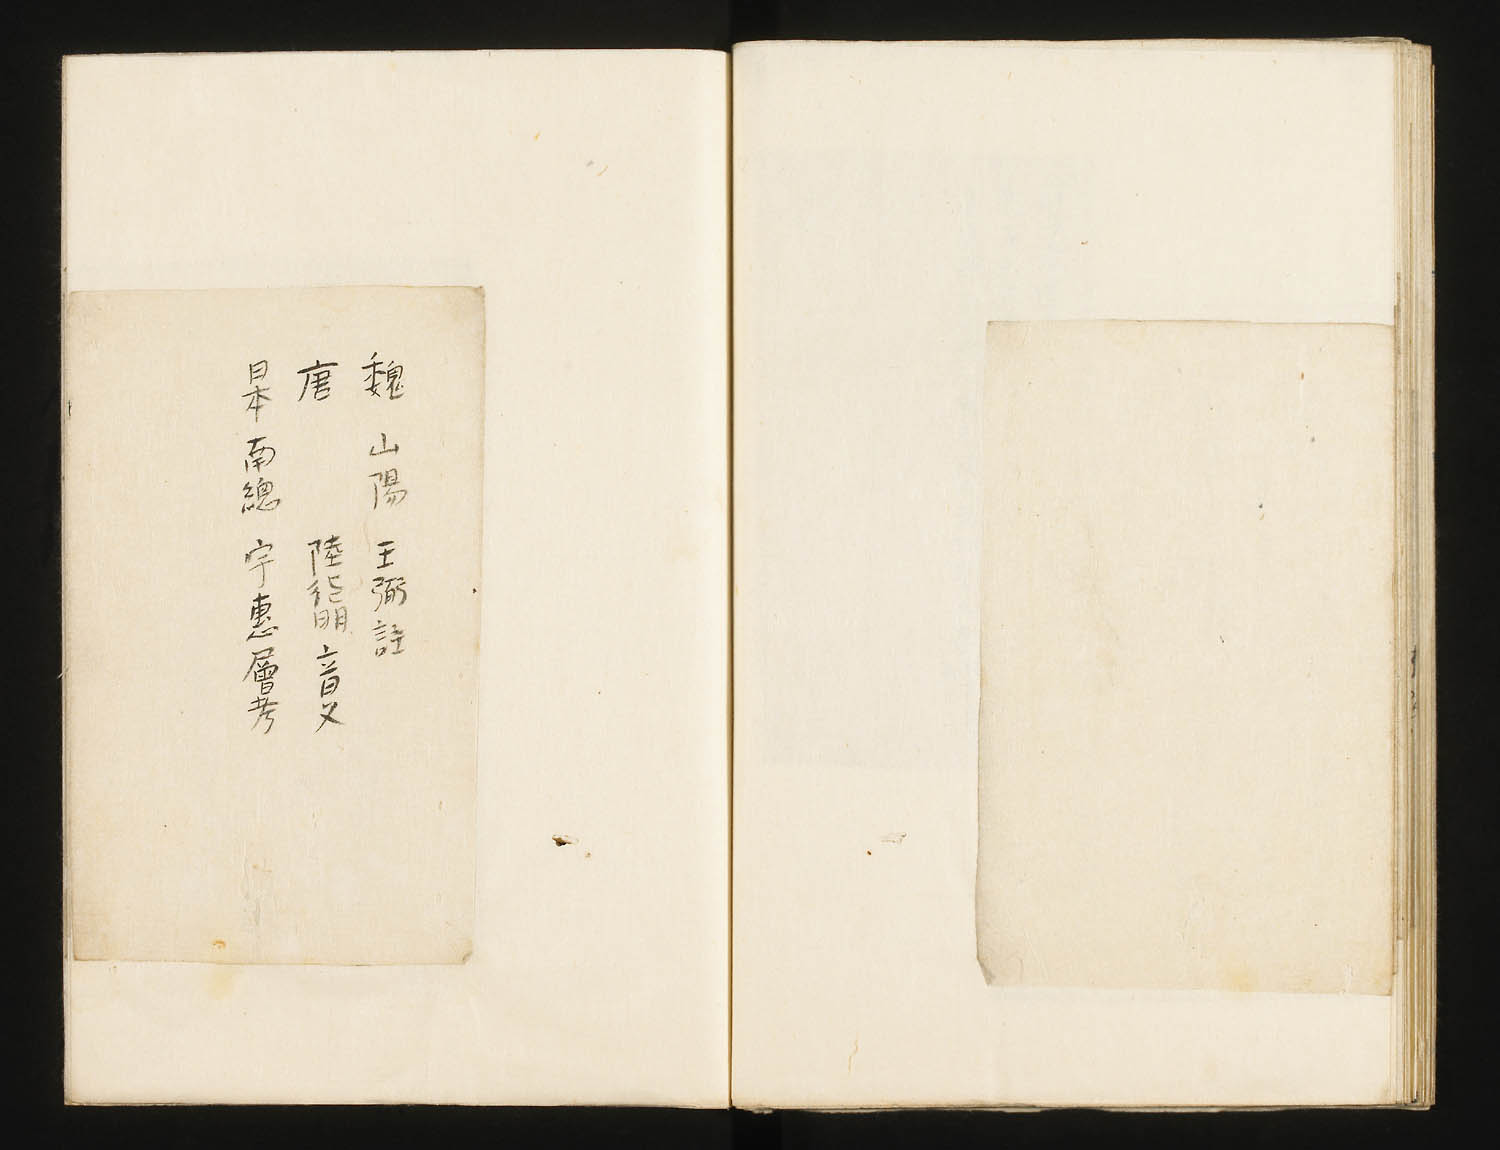 魏 山陽 王弼註
唐 陸德明音义
日本 南總 宇惠 層考